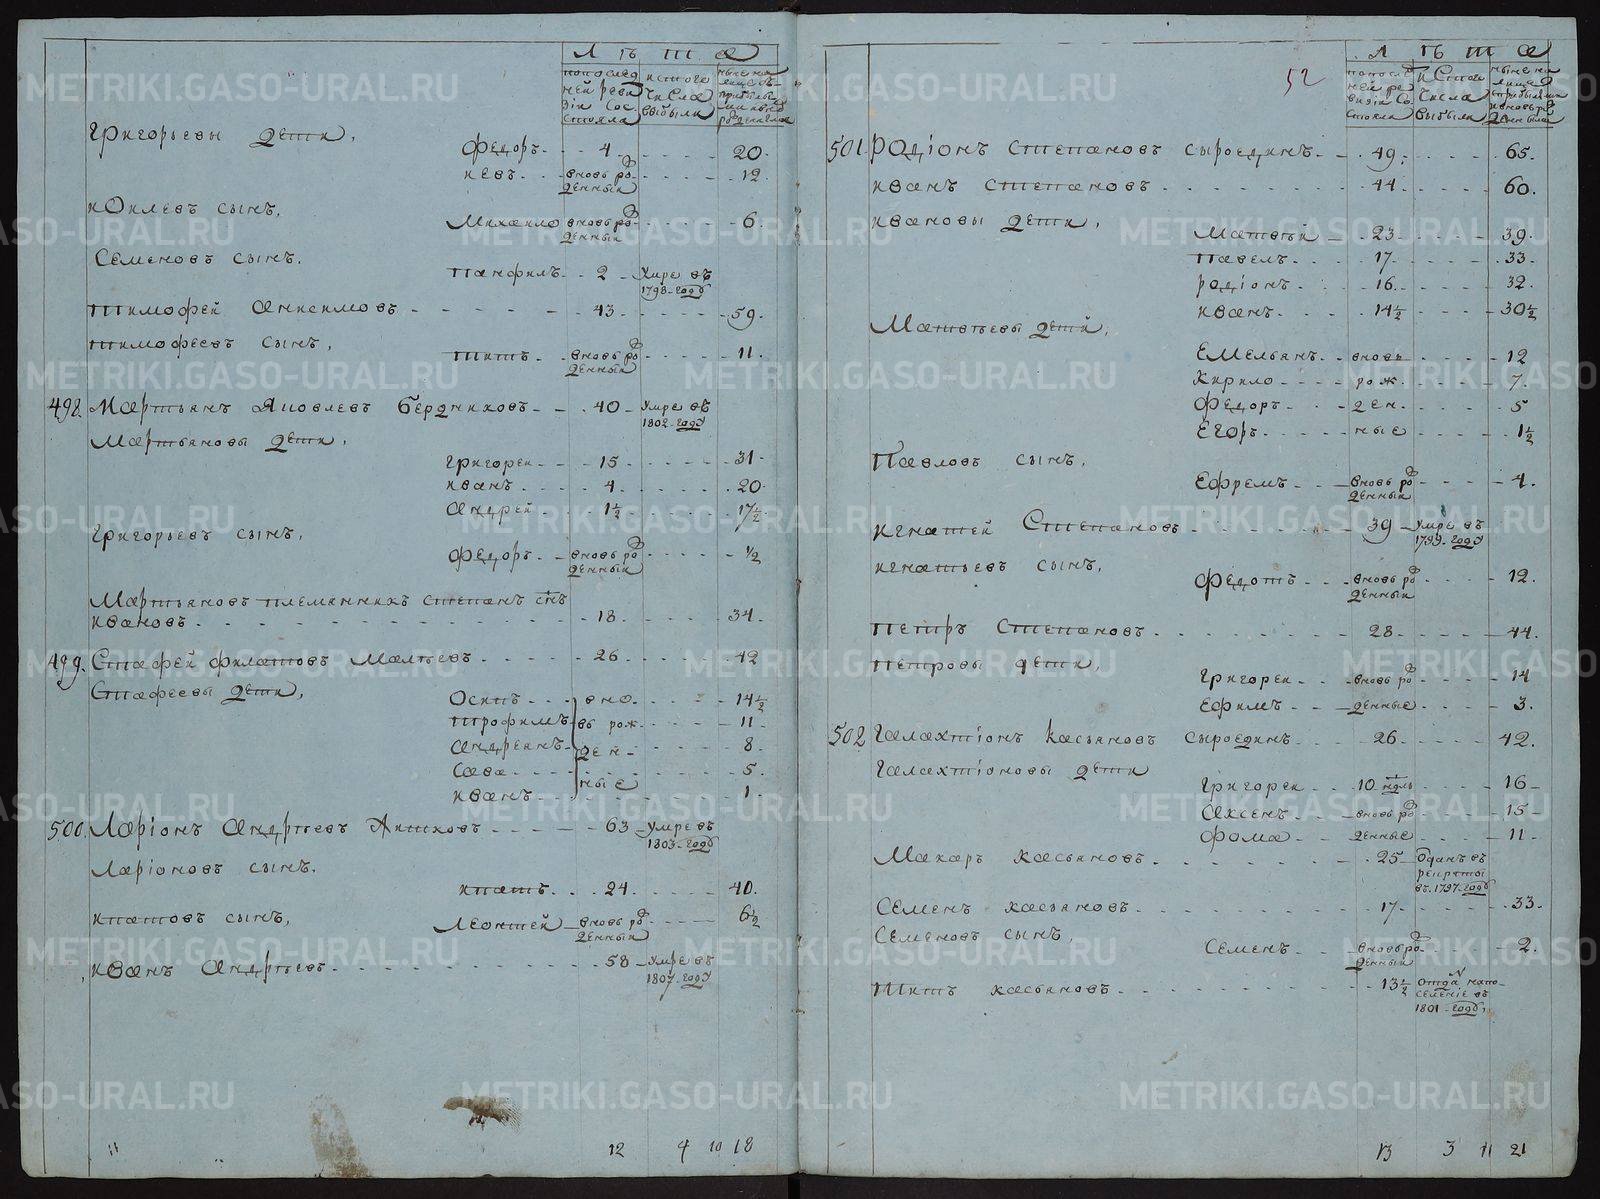 Лѣта
попослед
ней реви
зіи Сос
стояла
истого
числа
выбыли
Григорьевы дети,
Федоръ 4 20
иевъ вновь ро 12
жденный
иОилевъ сынъ,
Михаило вновь ро 6
жденный
Семеновъ сынъ.
панфилъ 2 Умре въ
1798 годѣ
тимофей Анисимовъ 43 59
тимофеевъ сынъ,
титъ вновь ро 11
жденный
498 Мартьянъ Яковлевъ Бердниковъ 40 Умре въ
1802 годѣ
Мартьяновы дети,
Григореи 15 31
иванъ 4 20
Андрей 1½ 17½
Григорьевъ сынъ,
Федоръ вновь ро ½
жденный
Мартьяновъ племянникъ степанъ снъ
ивановъ 18 34
499 Стафей филатовъ Малтьевъ 26 42
Стафеевы дети,
Осипъ вно 14½
трофимъ въ рож 11
Андреянъ ден 8
Сава 5
иванъ ные 1
500 Ларіонъ Андрѣевъ 63 умре въ
1803 годѣ
Ларіоновъ сынъ.
ипатъ 24 40
ипатовъ сынъ,
Леонтей вновь ро 6½
жденный
иванъ Андрѣевъ 58 умре въ
1807 годѣ
11 12 4 10 18
52
Лѣта
попослѣ
ней ре
визіи Со
стояла
исего
числа
выбыли
501 Родіонъ степановъ сыроединъ 49 65
иванъ степановъ 44 60
ивановы дети,
Матвѣй 23 39
павелъ 17 33
родіонъ 16 32
иванъ 14½ 30½
Матвѣевы дети,
Емельянъ вновь 12
Кирило рож 7
Федоръ ден 5
Егоръ ные 1½
Павловъ сынъ,
Ефремъ вновь ро 4
жденный
игнатей Степановъ 39 умре въ
1799 годѣ
игнатьевъ сынъ,
Федотъ вновь ро 12
жденный
петръ Степановъ 28 44
петровы дети,
Григореи вновь ро 14
Ефимъ жденные 3
502 Галахтіонъ Касьяновъ сыроединъ 26 42
Галахтіоновы дети
Григореи 10 16
Аксенъ вновь ро 15
Фома жденные 11
Макаръ касьяновъ 25 Отданъ въ
рекруты
въ 1797 годѣ
Семенъ касьяновъ 17 33
Семеновъ сынъ,
Семенъ вновь ро 2
жденный
титъ касьяновъ 13½ отдан напо
селеніе въ
1801 годѣ,
13 3 11 21
METRIKI.GASO-URAL.RU